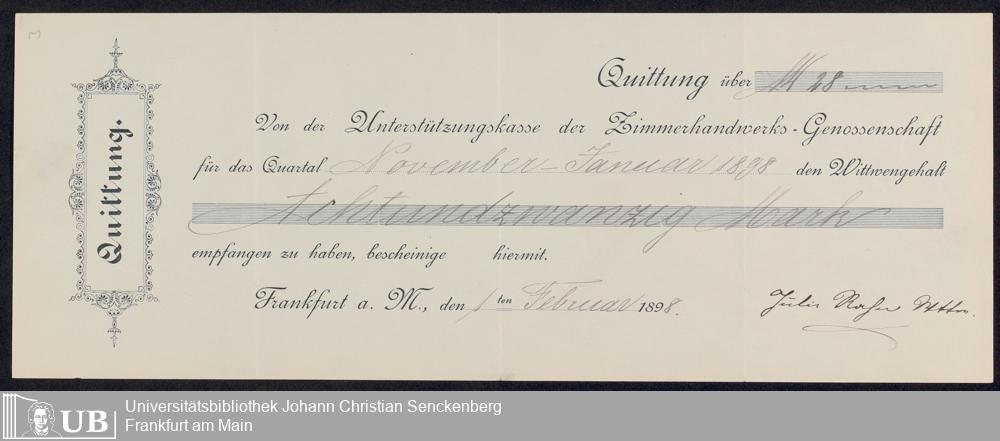 Quittung.
Quittung über M 28
Von der Unterstützungskasse der Zimmerhandwerks-Genossenschaft
für das Quartal November-Januar 1898 den Wittwengehalt
Achtundzwanzig Mark
empfangen zu haben, bescheinige hiermit.
Frankfurt a. M., den 1ten Februar 1898.
UB
Universitätsbibliothek Johann Christian Senckenberg
Frankfurt am Main